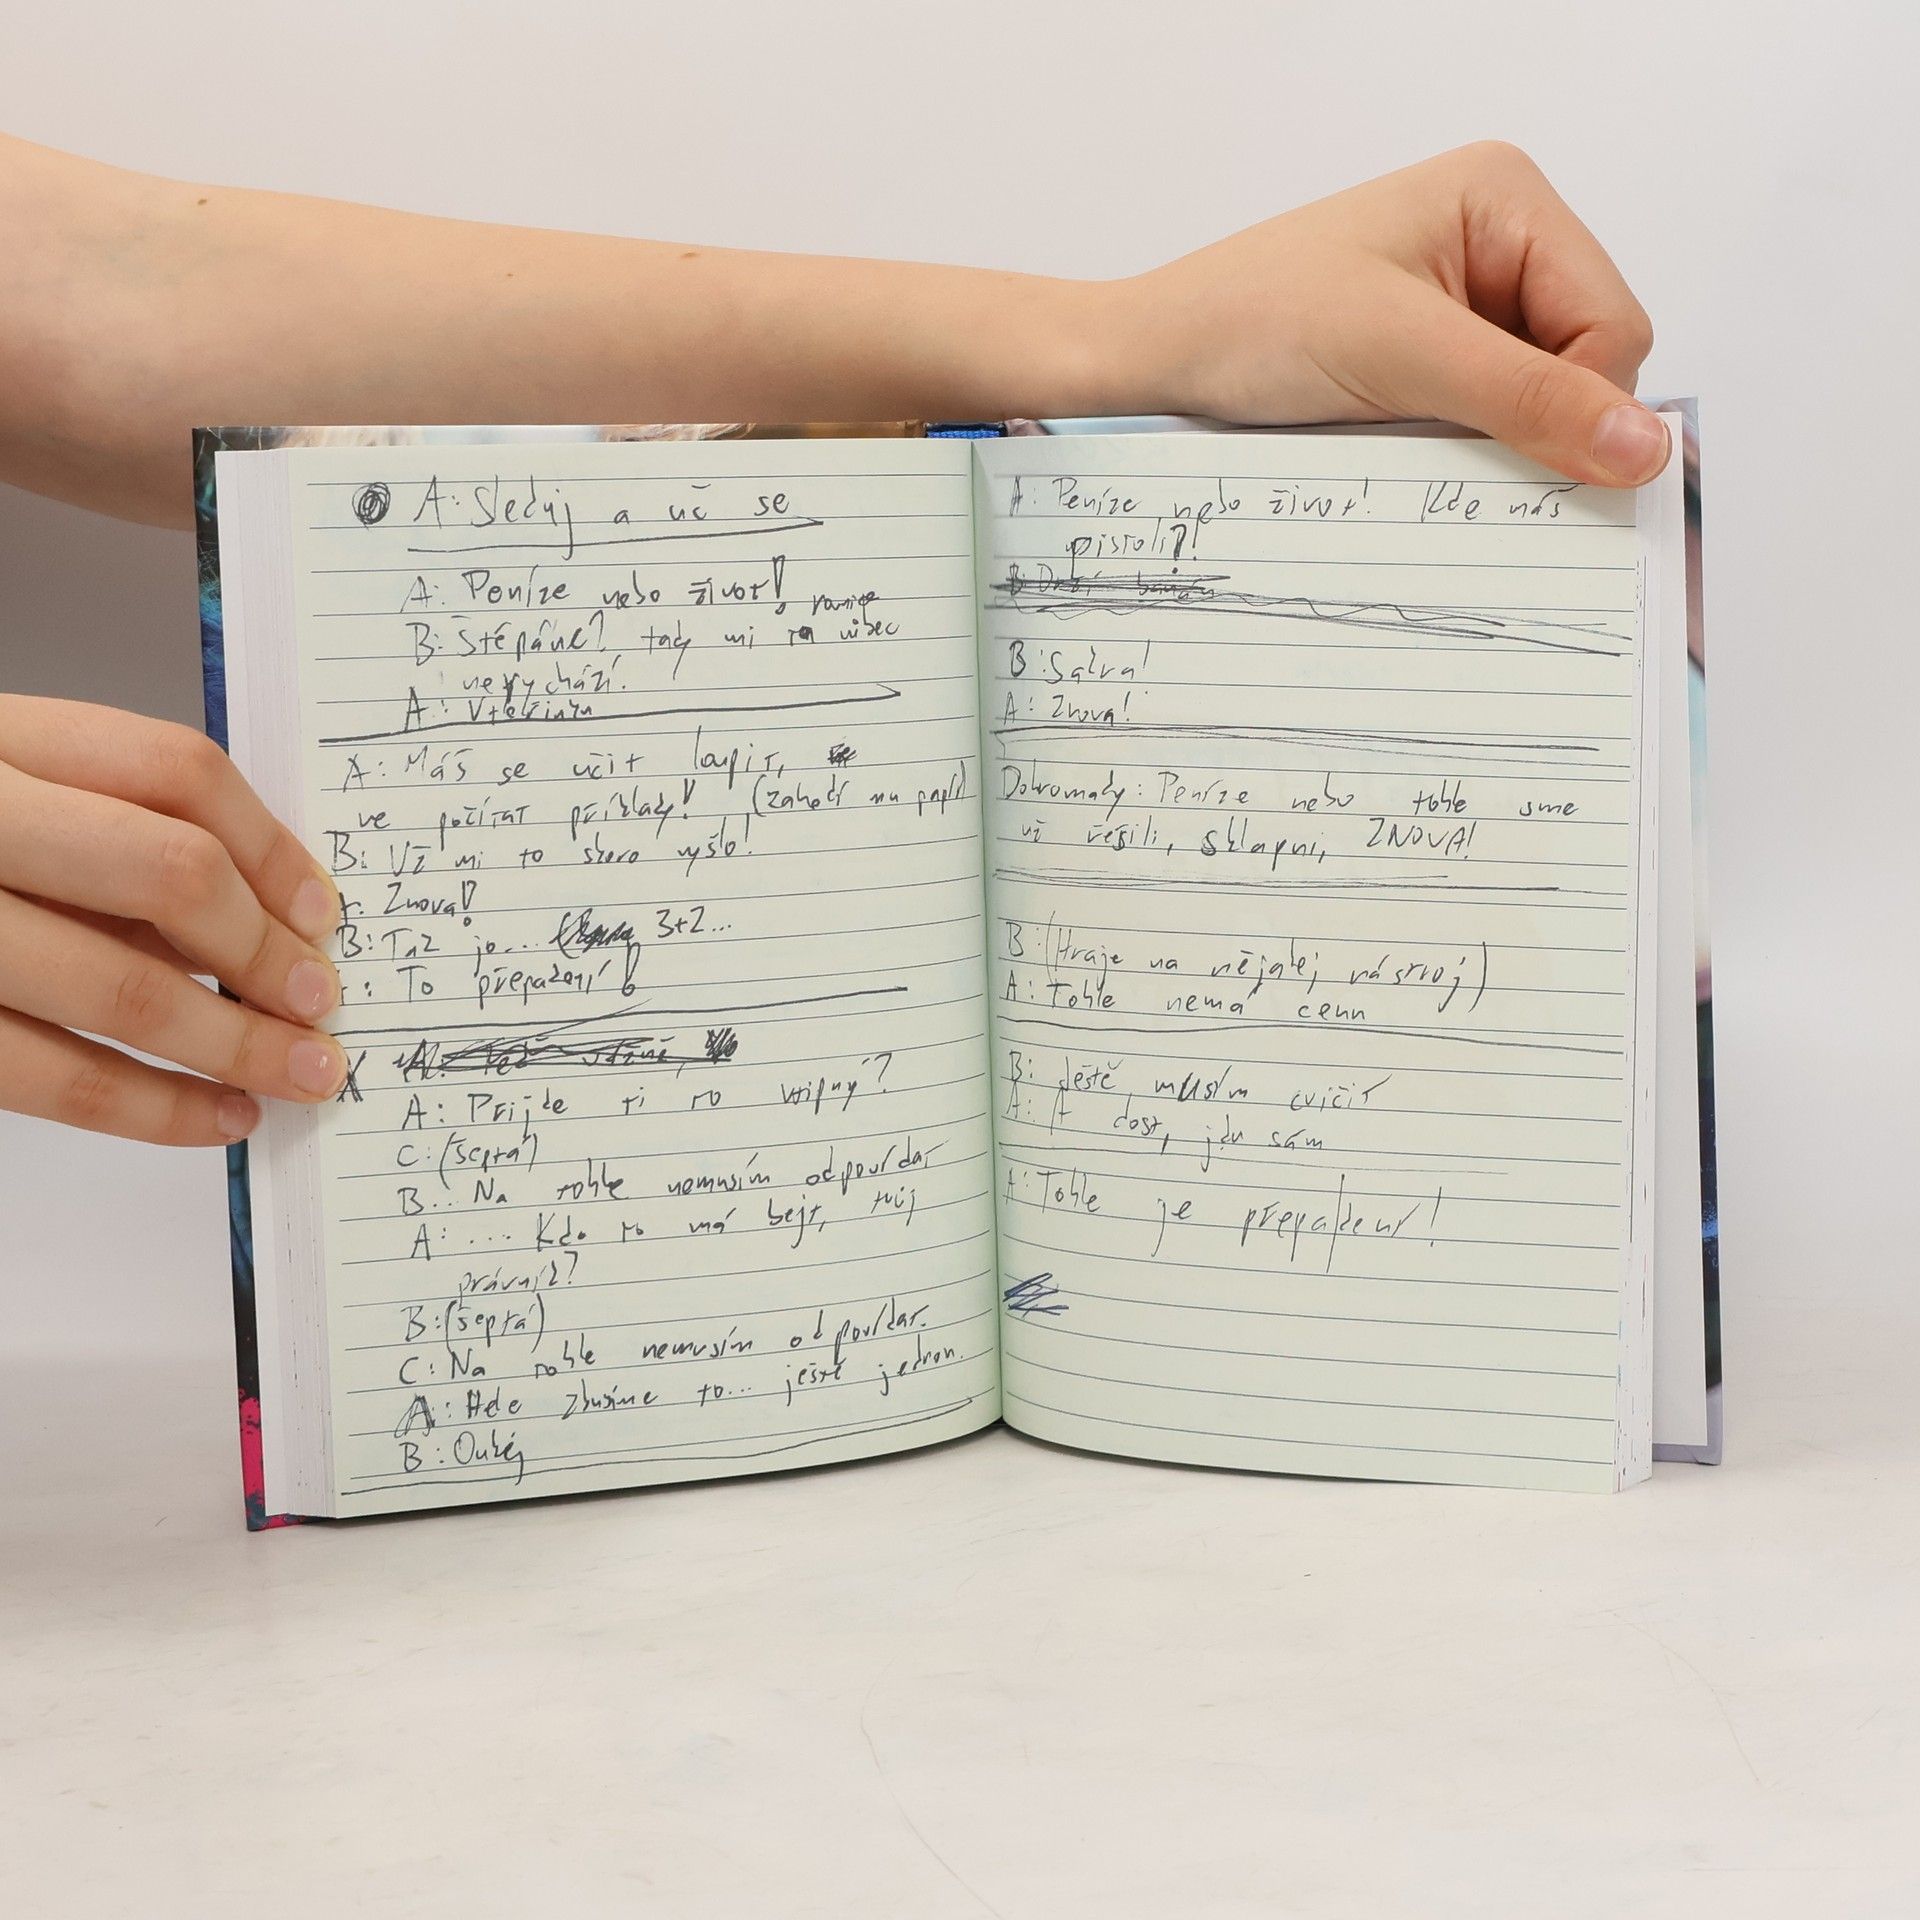 A: Sleduj a uč se
A: Peníze nebo život!
rovnice
B: Štěpáne?, tady mi ta vůbec
nevychází.
A: Vteřinku
A: Máš se učit loupit,
ne počítat příklady! (zahodí mu papír)
B: Už mi to skoro vyšlo!
A: Znova!
B: Tak jo... 3+2...
A: To přepadení!
X
A: Prijde ti to vtipný?
C: (šeptá)
B... Na tohle nemusím odpovídat
A: ... Kdo to má bejt, tvůj
právník?
B: (šeptá)
C: Na tohle nemusím odpovídat.
A: Hele zkusíme to... ještě jednou.
B: Oukej
A: Peníze nebo život! Kde máš
pistoli?!
B: Drží banán
B: Sakra!
A: Znova!
Dohromady: Peníze nebo tohle sme
už řešili, sklapni, ZNOVA!
B (Hraje na nějakej nástroj)
A: Tohle nemá cenu
B: Ještě musím cvičit
A: A dost, jdu sám
A: Tohle je přepadení!